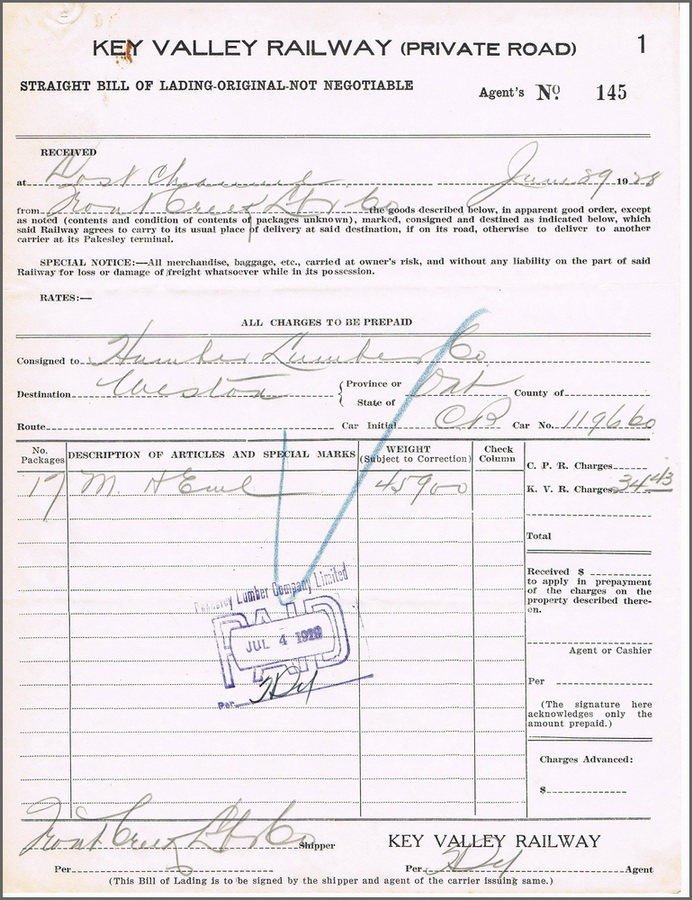 KEY VALLEY RAILWAY (PRIVATE ROAD) 1
STRAIGHT BILL OF LADING-ORIGINAL-NOT NEGOTIABLE
Agent's No. 145
RECEIVED
at Lost Channel June 29 1928
from Trout Creek Co the goods described below, in apparent good order, except
as noted (contents and condition of contents of packages unknown), marked, consigned and destined as indicated below, which
said Railway agrees to carry to its usual place of delivery at said destination, if on its road, otherwise to deliver to another
carrier at its Pakesley terminal.
SPECIAL NOTICE:—All merchandise, baggage, etc., carried at owner's risk, and without any liability on the part of said
Railway for loss or damage of freight whatsoever while in its possession.
RATES:—
ALL CHARGES TO BE PREPAID
Consigned to Humber Lumber Co
Destination Weston { Province or State of Ont County of
Route Car Initial C.P. Car No. 119660
No. Packages DESCRIPTION OF ARTICLES AND SPECIAL MARKS WEIGHT (Subject to Correction) Check Column
17 M. 45900
C. P. R. Charges
K. V. R. Charges 34.43
Total
Received $
to apply in prepayment
of the charges on the
property described there-
on.
Agent or Cashier
Per
(The signature here
acknowledges only the
amount prepaid.)
Charges Advanced:
$
Pakesley Lumber Company Limited
PAID
JUL 4 1928
Per
Trout Creek Co Shipper
KEY VALLEY RAILWAY
Per Per Agent
(This Bill of Lading is to be signed by the shipper and agent of the carrier issuing same.)